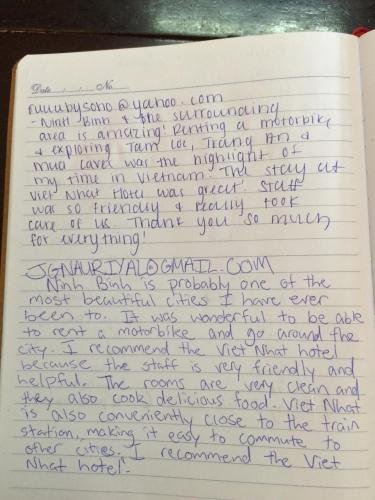 Date / / No
ruuubysoho@yahoo.com
- Ninh Binh & the surrounding
area is amazing! Renting a motorbike
& exploring Tam Coc, Trang An &
mua caves was the highlight of
my time in Vietnam. The stay at
Viet Nhat Hotel was great! Staff
was so friendly & really took
care of us. Thank you so much
for everything!
JGNAURIYAL@GMAIL.COM
Ninh Binh is probably one of the
most beautiful cities I have ever
been to. It was wonderful to be able
to rent a motorbike and go around the
city. I recommend the Viet Nhat hotel
because the staff is very friendly and
helpful. The rooms are very clean and
they also cook delicious food. Viet Nhat
is also conveniently close to the train
station, making it easy to commute to
other cities. I recommend the Viet
Nhat hotel.